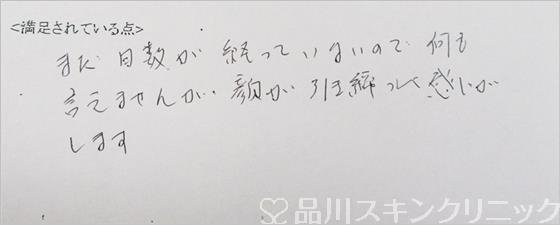 <満足されている点>
まだ日数が経っていないので何も
言えませんが、顔が引き締った感じが
します
品川スキンクリニック